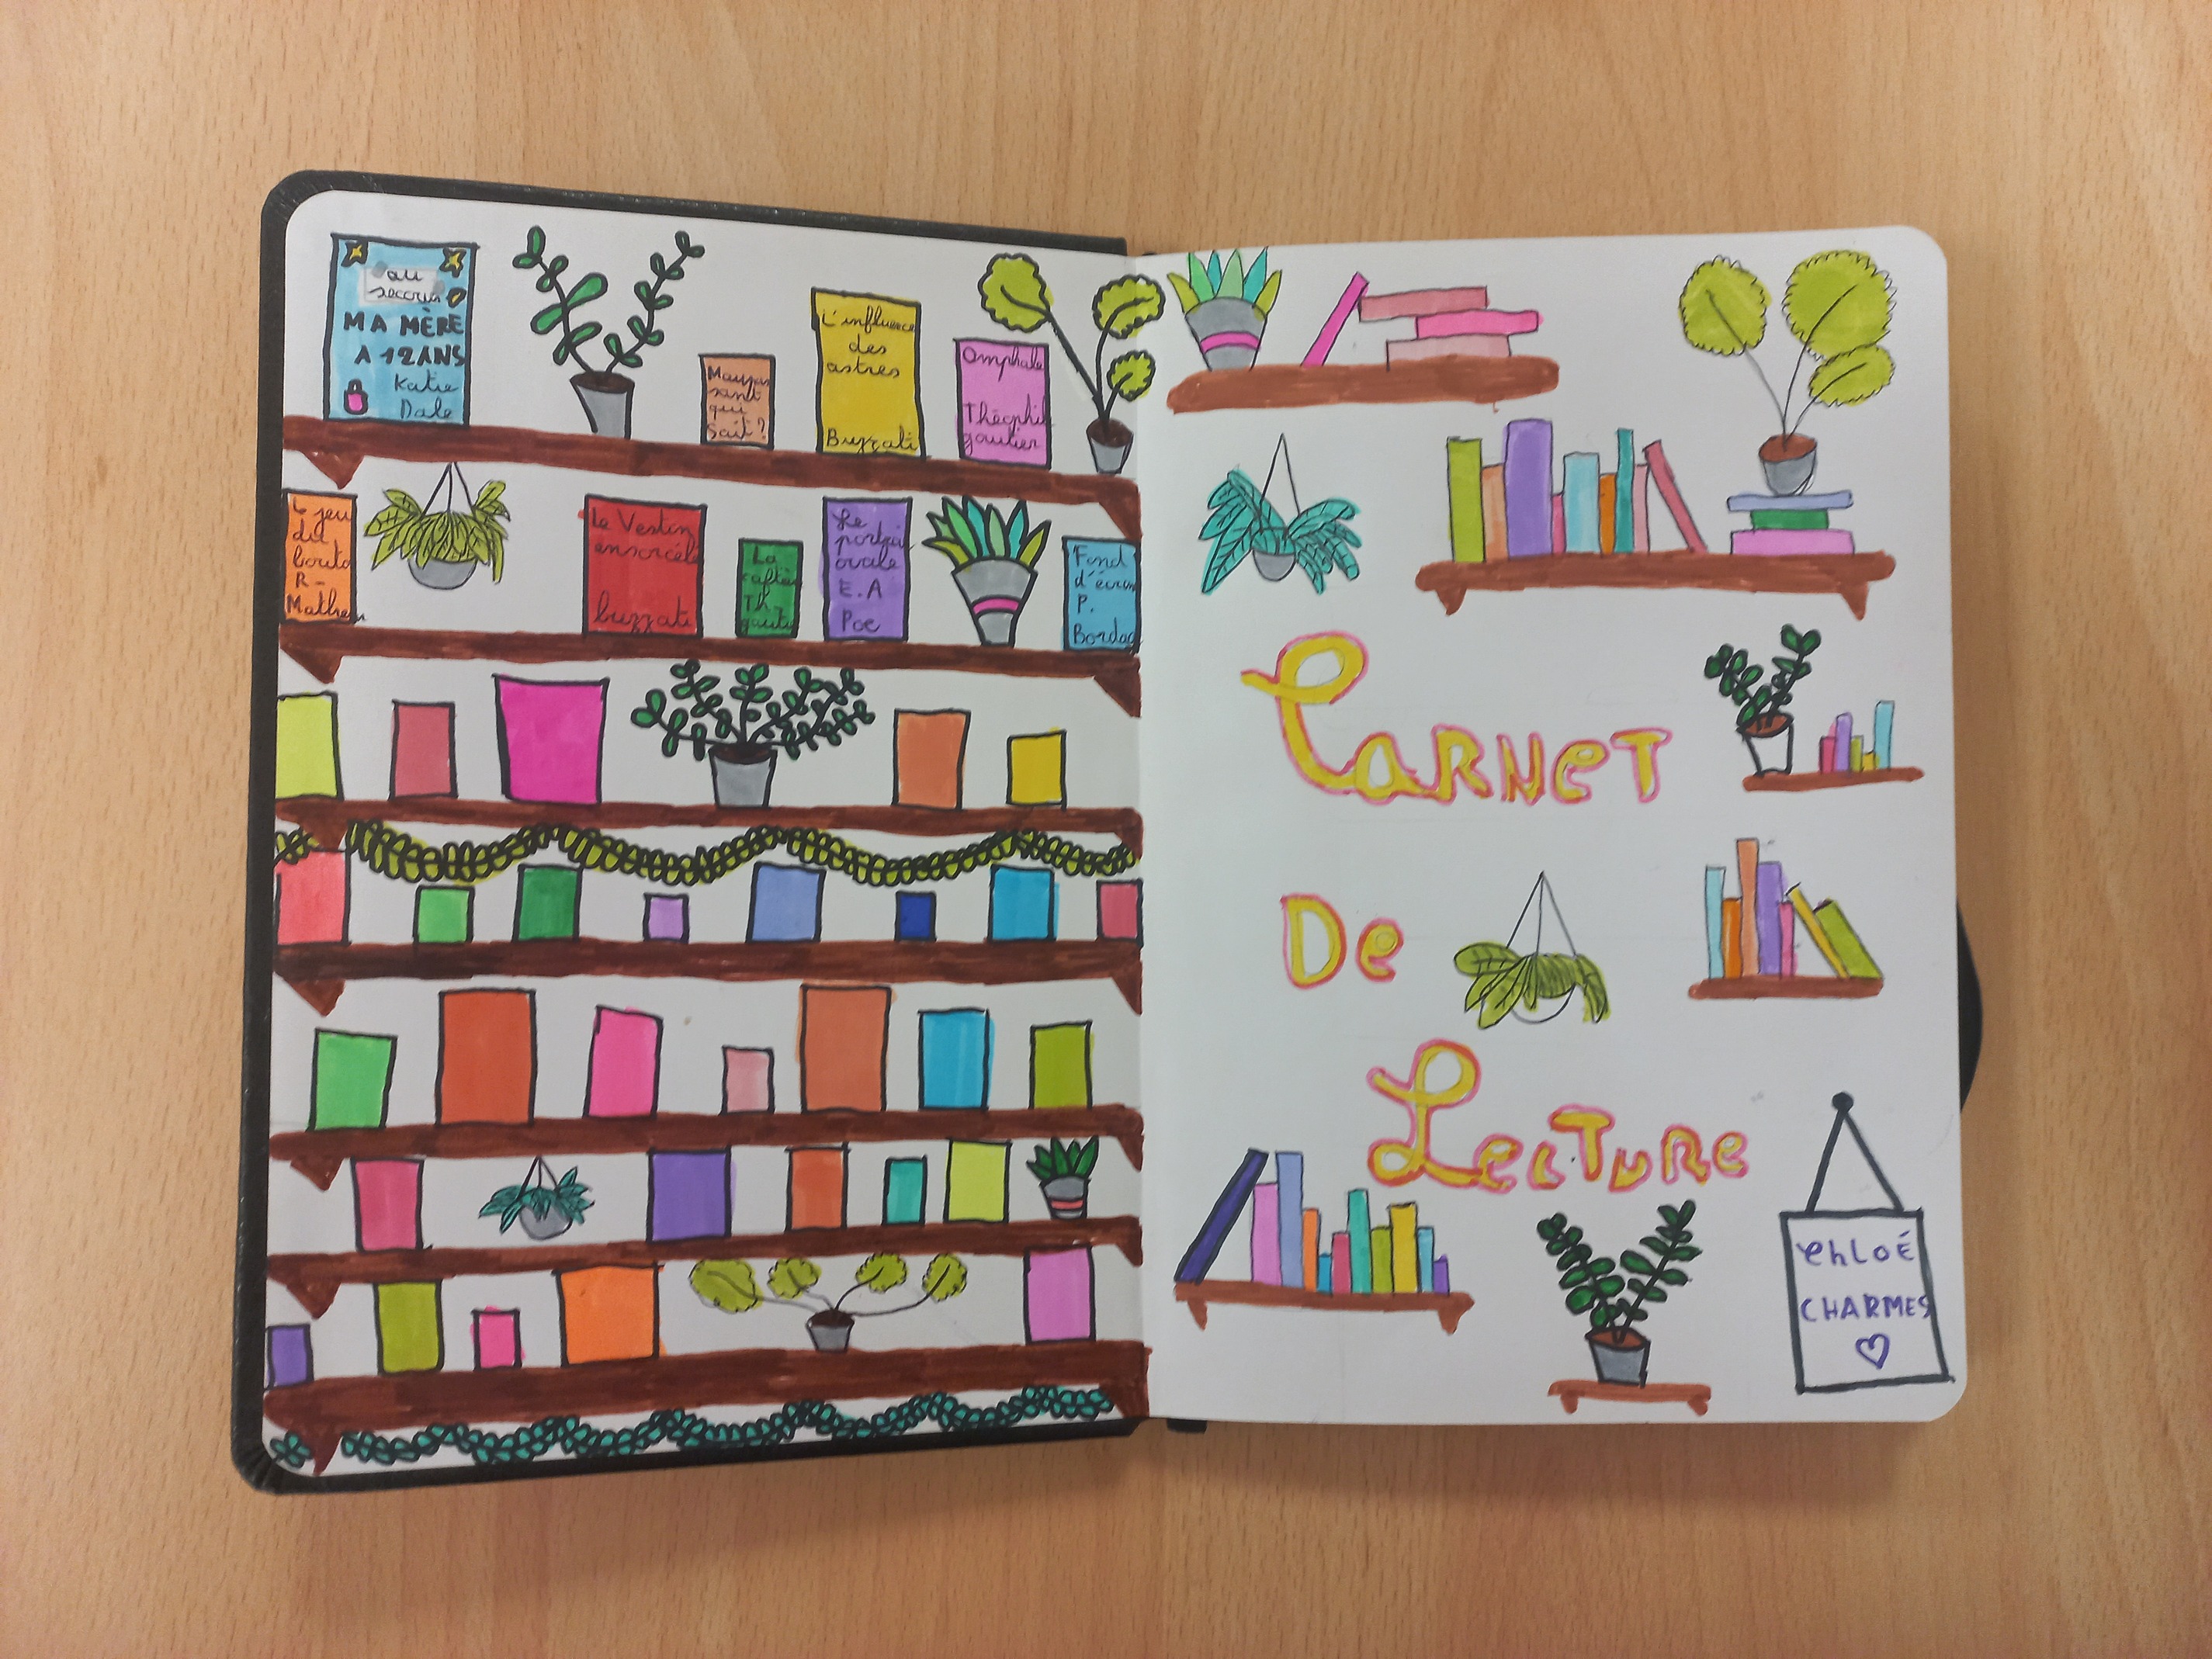 au
secours
MA MÈRE
A 12 ANS
Katie
Dale
Maupas
sant
qui
Sait?
L'influence
des
astres
Buzzati
Omphale
Théophil
gautier
L jeu
du
bouto
R-
Mathes
Le Veston
ensorcelé
buzzati
La
cafetiè
Th
gautie
Le
portrai
ovale
E.A
Poe
Fond
d'écran
P.
Bordag
CARNET
De
Lecture
Chloé
CHARMES